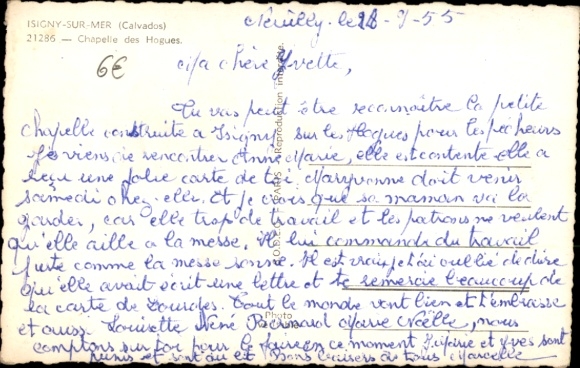 ISIGNY-SUR-MER (Calvados)
21286 — Chapelle des Hogues.
Neuilly, le 18-7-55
6€
Ma chère Yvette,
Tu vas peut être reconnaître la petite
chapelle construite a Isigny sur les Hogues pour les pêcheurs
Je viens de rencontrer Anne Marie, elle est contente elle a
reçu une jolie carte de toi. Maryvonne doit venir
samedi chez elle. Et je crois que sa maman va la
garder, car elle trop de travail et les patrons ne veulent
qu'elle aille a la messe. Il lui commande du travail
juste comme la messe sonne. Il est vrai j'ai oublié de dire
qu'elle avait écrit une lettre et te remercie beaucoup de
la carte de Lourdes. Tout le monde vont bien et t'embrasse
et aussi Louisette Néné Bernard Marie Noëlle, nous
comptons sur toi pour le en ce moment et Yves sont
punis et sont au lit Bons baisers de tous Marcelle
Reproduction interdite
Photo